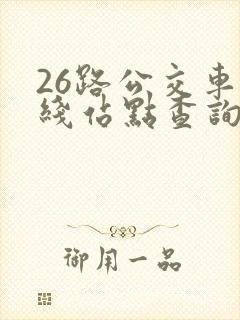 26路公交車
綫佔點查詢
御用一品